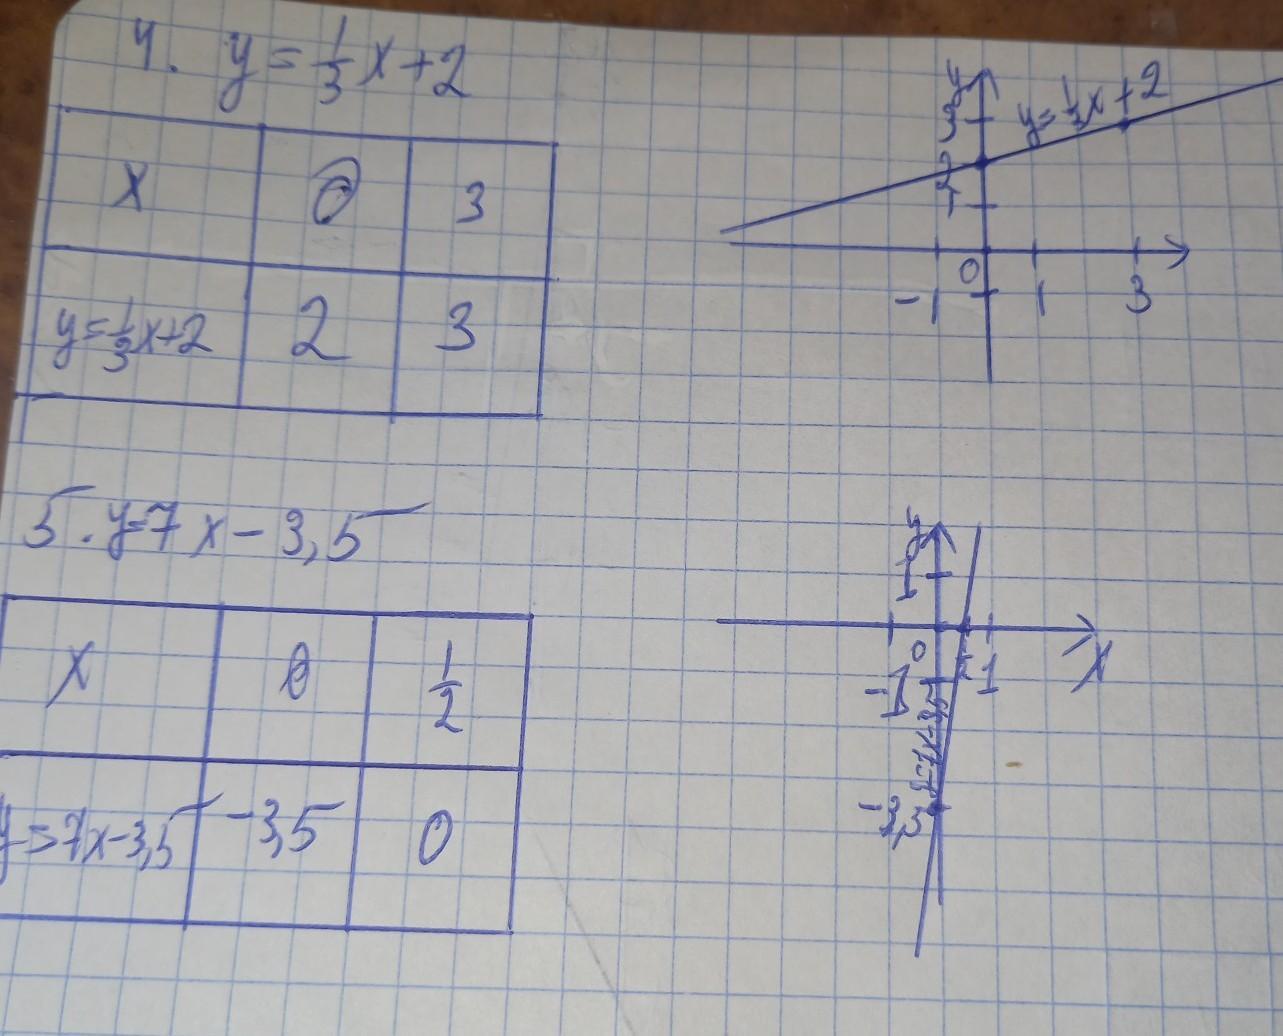 4. y = 1/3 x + 2
x 0 3
y = 1/3 x + 2 2 3
y
3
2
1
0
-1 1 3
5. y = 7x - 3,5
x 0 1/2
y = 7x - 3,5 -3,5 0
y
1
0
-1 1 x
y = 7x - 3,5